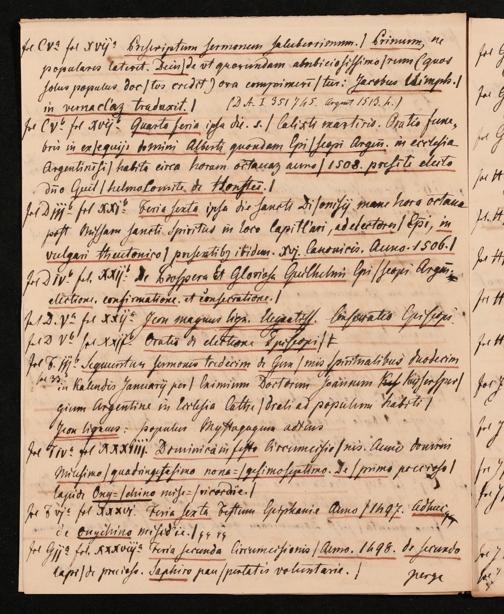 fol C Vᵃ fol XVIJᵃ Prescriptum sermonem saluberrimum. / Primum, ne
populares lateret. Dein / de vt quorundam abuiciosissimo / rum (quos
solus populus doc / tos credit) ora comprimere / tur: Jacobus Wimph. /
in vernaclaz traduxit. / (D.A. I 351 745. Argent 1513. 4.)
fol C Vᵇ fol XVIJᵇ Quarta feria ipsa die. s. / Calixti martiris. Oratio fune,,
bris in exequijs domini Alberti quondam Epi / scopi Argen. in ecclesia
Argentinensi / habita circa horam octauaz anno / 1508. presente electo
dño Guil / helmo Comite de Honstein. /
fol D iijᵇ fol XXIᵇ Feria sexta ipso die Sancti Dionisij mane hora octaua
post Missam sancti Spiritus in loco Capitl'ari, ad electores / Epi, in
vulgari theutonico / presentibus ibidem. XVJ. Canonicis. Anno. 1506. /
fol D ivᵇ fol. XXIJᵇ De Prospera Et Gloriosa Guilhelmi Epi / scopi Argen.
electione. confirmatione. et consecratione. /
fol D. Vᵃ fol XXIJᵃ Jeon magnus
fol D Vᵇ fol XXIIJᵇ Oratio de electione Episcopi /
Sequuntur sermones tredecim de Gem / mis spiritualibus duodecim
in Kalendis January per / Eximium Doctorem Joannem Keiserspur /
gium Argentine in Ecclesia Cathe / drali ad populum habiti /
populus Mystagogum
fol F ivᵃ fol XXXIIII. Dominica in festo Circumcisio / nis. Anno domini
Millesimo / quadringentesimo nona= / gesimoseptimo. De / primo precioso /
lapide Ony= / chino mise= / ricordie. /
fol F Vjᵃ fol XXXVJ. Feria sexta Festum Epiphanie Anno / 1497. adhuc
de Onychino miscdie. /
fol G ijᵃ fol. XXXVIIJᵃ Feria secunda Circumcisionis / Anno. 1498. de secundo
lapi / de precioso. Saphiro pau / pertatis voluntarie. /
perge